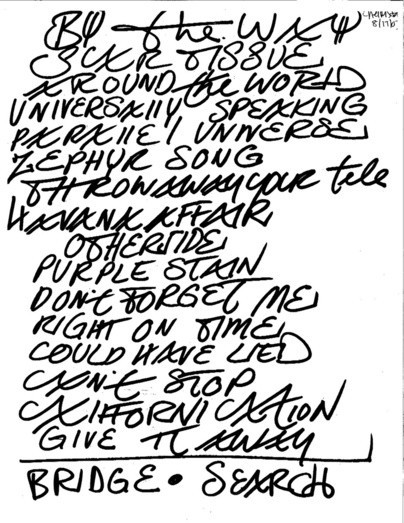 BY the WAY
SCAR TISSUE
AROUND the WORLD
UNIVERSAllY SPEAKING
PARAllEl UNIVERSE
ZEPHYR SONG
THROW AWAY YOUR tele
HAVANA AFFAIR
OTHERSIDE
PURPLE STAIN
DON't FORGET ME
RIGHT ON TIME
COULD HAVE LIED
CAN't STOP
CALIFORNICATION
GIVE IT AWAY
BRIDGE • SEARCH